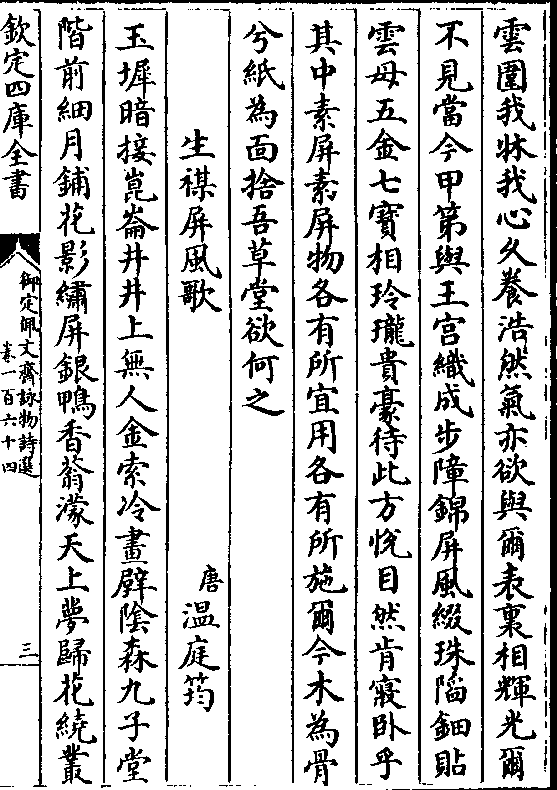 雲圍我牀我心久養浩然氣亦欲與爾表裏相輝光爾
不見當今甲第與王宫織成步障錦屏風綴珠䧟鈿貼
雲母五金七寳相玲瓏貴豪待此方恱目然肯寢卧乎
其中素屏素屏物各有所宜用各有所施爾今木為骨
兮紙為面捨吾草堂欲何之
生禖屏風歌
唐 温庭筠
玉墀暗接崑崙井井上無人金索冷畫壁陰森九子堂
階前細月鋪花影繡屏銀鴨香蓊濛天上夢歸花繞叢
欽定四庫全書
御定佩文齋詠物詩選
卷一百六十四
三